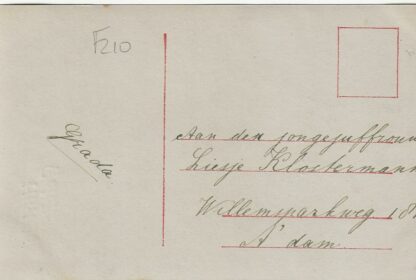 F210
Grada
Aan den jongejuffrouw
Liesje Klostermann
Willemsparkweg 18
A'dam